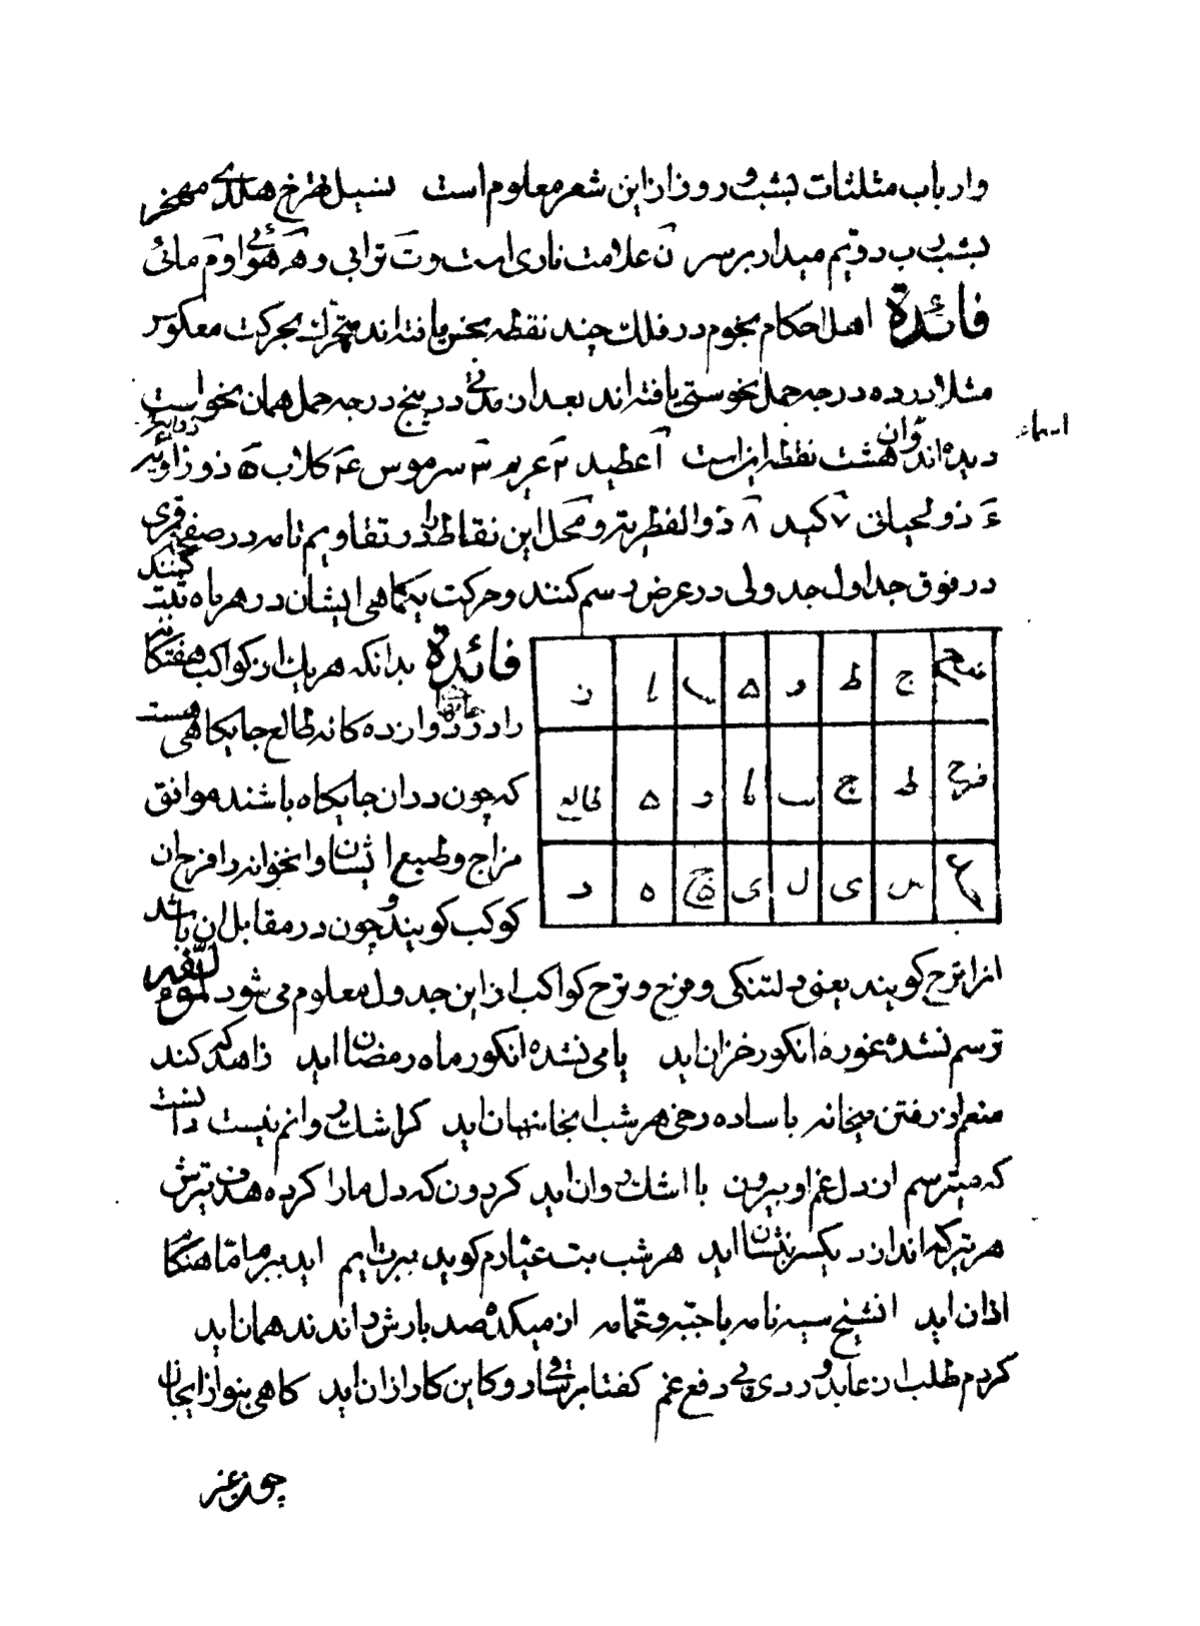 وارباب مثلثات بشب و روز از این شعر معلوم است
بشب ب دویم میدار بر سر ن علامت ناری است وت ترابی و هَ هوائی وم مائی
فائدة اهل احکام نجوم در فلک چند نقطه نحس یافته اند متحرک بحرکت معکوس
مثلا در ده درجه حمل نحوستی یافته اند بعد از مدتی در پنج درجه حمل همان نحوست
دیده اند وان هشت نقطه اینست آ عطید ۲ غریم ۳ سرموس ۴ کلاب ۵ ذو زوابه
ء ذو لحیانی ۷ کید ۸ ذوالفطریتر و محل این نقاط را در تقاویم تامه در صفحه قمری
در فوق جداول جدولی در عرض رسم کنند و حرکت یکماهی ایشان در هر ماه ثبت کنند
فائدة بدانکه هر یک از کواکب هفتگانه
را در دوازده کانه طالع جایکاهی هست
که چون در ان جایکاه باشند موافق
مزاج و طبع ایشان وانخوانه را فرح ان
کوکب کویند و چون در مقابل ان باشد
ج ط د ه ا ن
فرح ط ج ب یا و ه طالع
س ی ل ی ه د
انرا ترح کویند یعنی دلتنکی و فرح و ترح کواکب از این جدول معلوم می شود
ترسم نشده غوره انکور خزان اید یا می نشده انکور ماه رمضان اید زاهد که کند
منعم از رفتن میخانه با ساده رخی هر شب اینجا نهان اید کر اشک روانم نیست دانست
که میترسم از دل غم او بیرون با اشک روان اید کردون که دل ما را کرده هدف تیرش
هر تیر که اندازد یکسر بنشان اید هر شب بت عیارم کوید ببرت ایم اید ببر ما تا هنکام
اذان اید ان شیخ سیه نامه با جبه و عمامه از میکده صد بارش راندند همان اید
کردم طلب از عابد وردی پی دفع غم کفتا بر ساقی رو کاین کار از ان اید کاهی بنواز ایجان
چون غیر